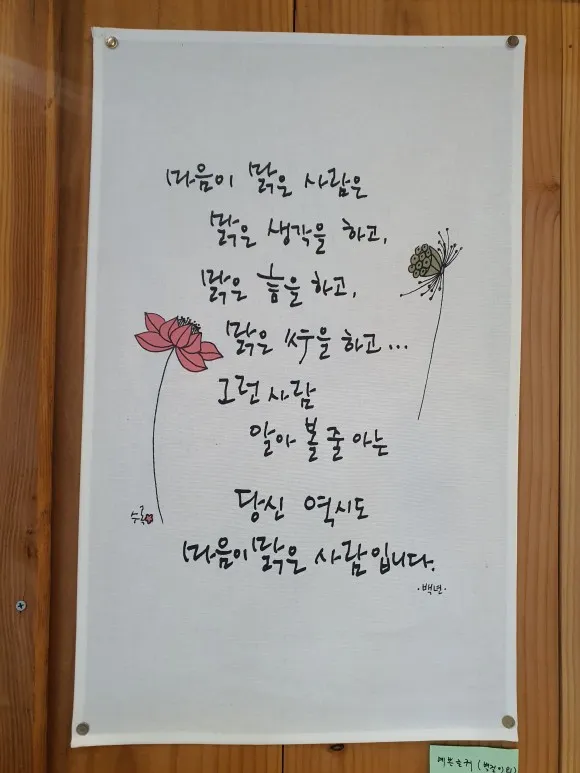 마음이 맑은 사람은
맑은 생각을 하고,
맑은 言을 하고,
맑은 行을 하고...
그런 사람
알아 볼 줄 아는
당신 역시도
마음이 맑은 사람입니다.
·백년·
수록
예쁜글귀